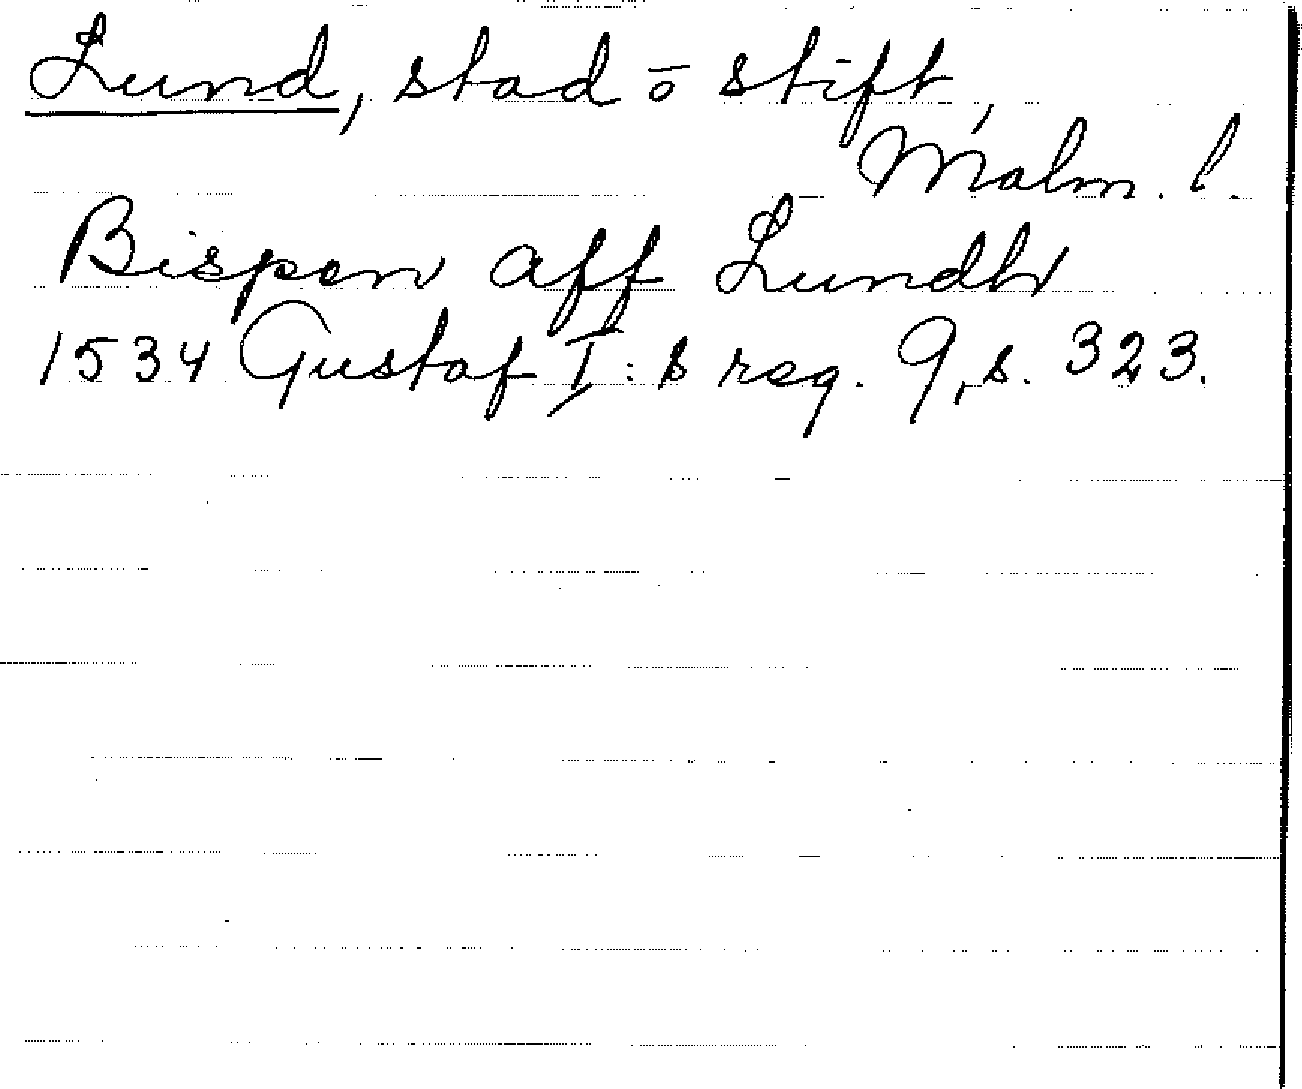 Lund, stad ō stift,
Malm. l.
Bispen aff Lundh
1534 Gustaf I:s reg. 9, s. 323.